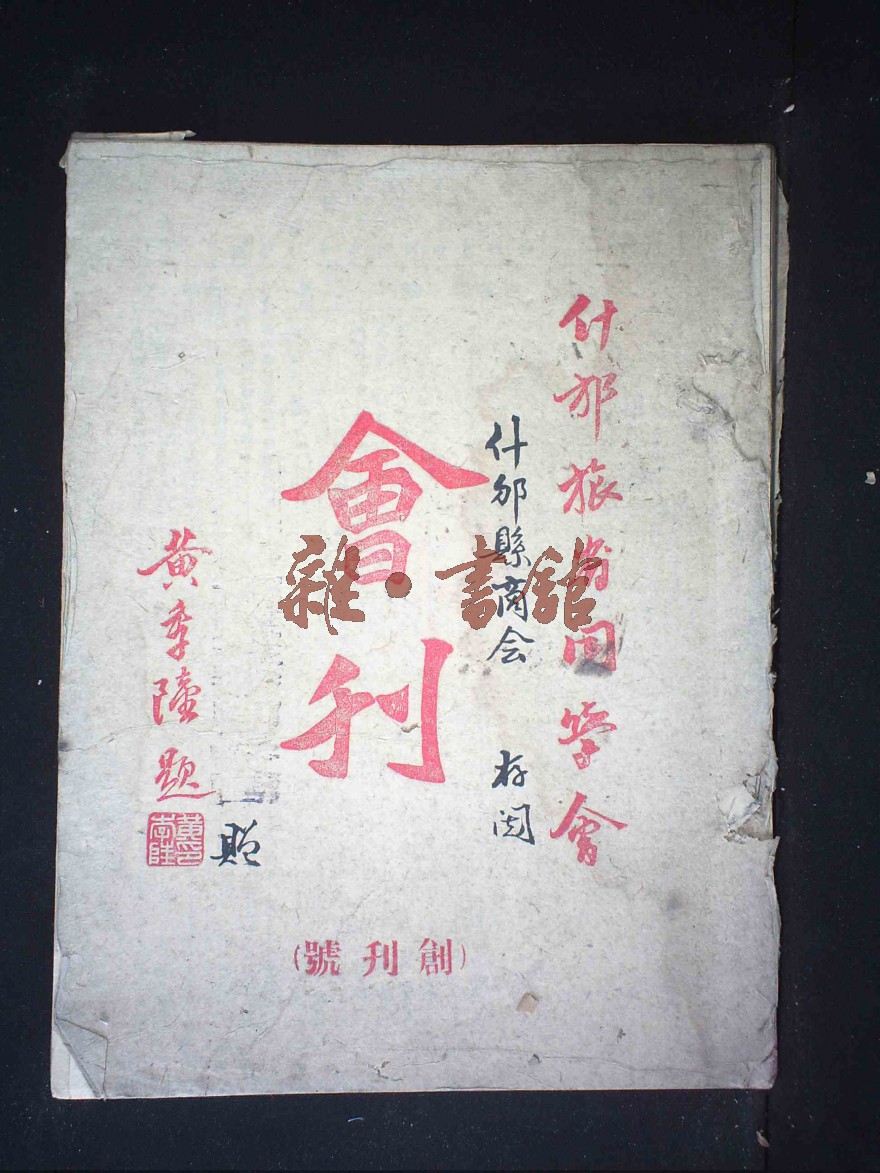 什邡旅省同學會
什邡縣商会 存閱
會刊
黄季陸題
黄季陸印
贈
(創刊號)
雜·書館